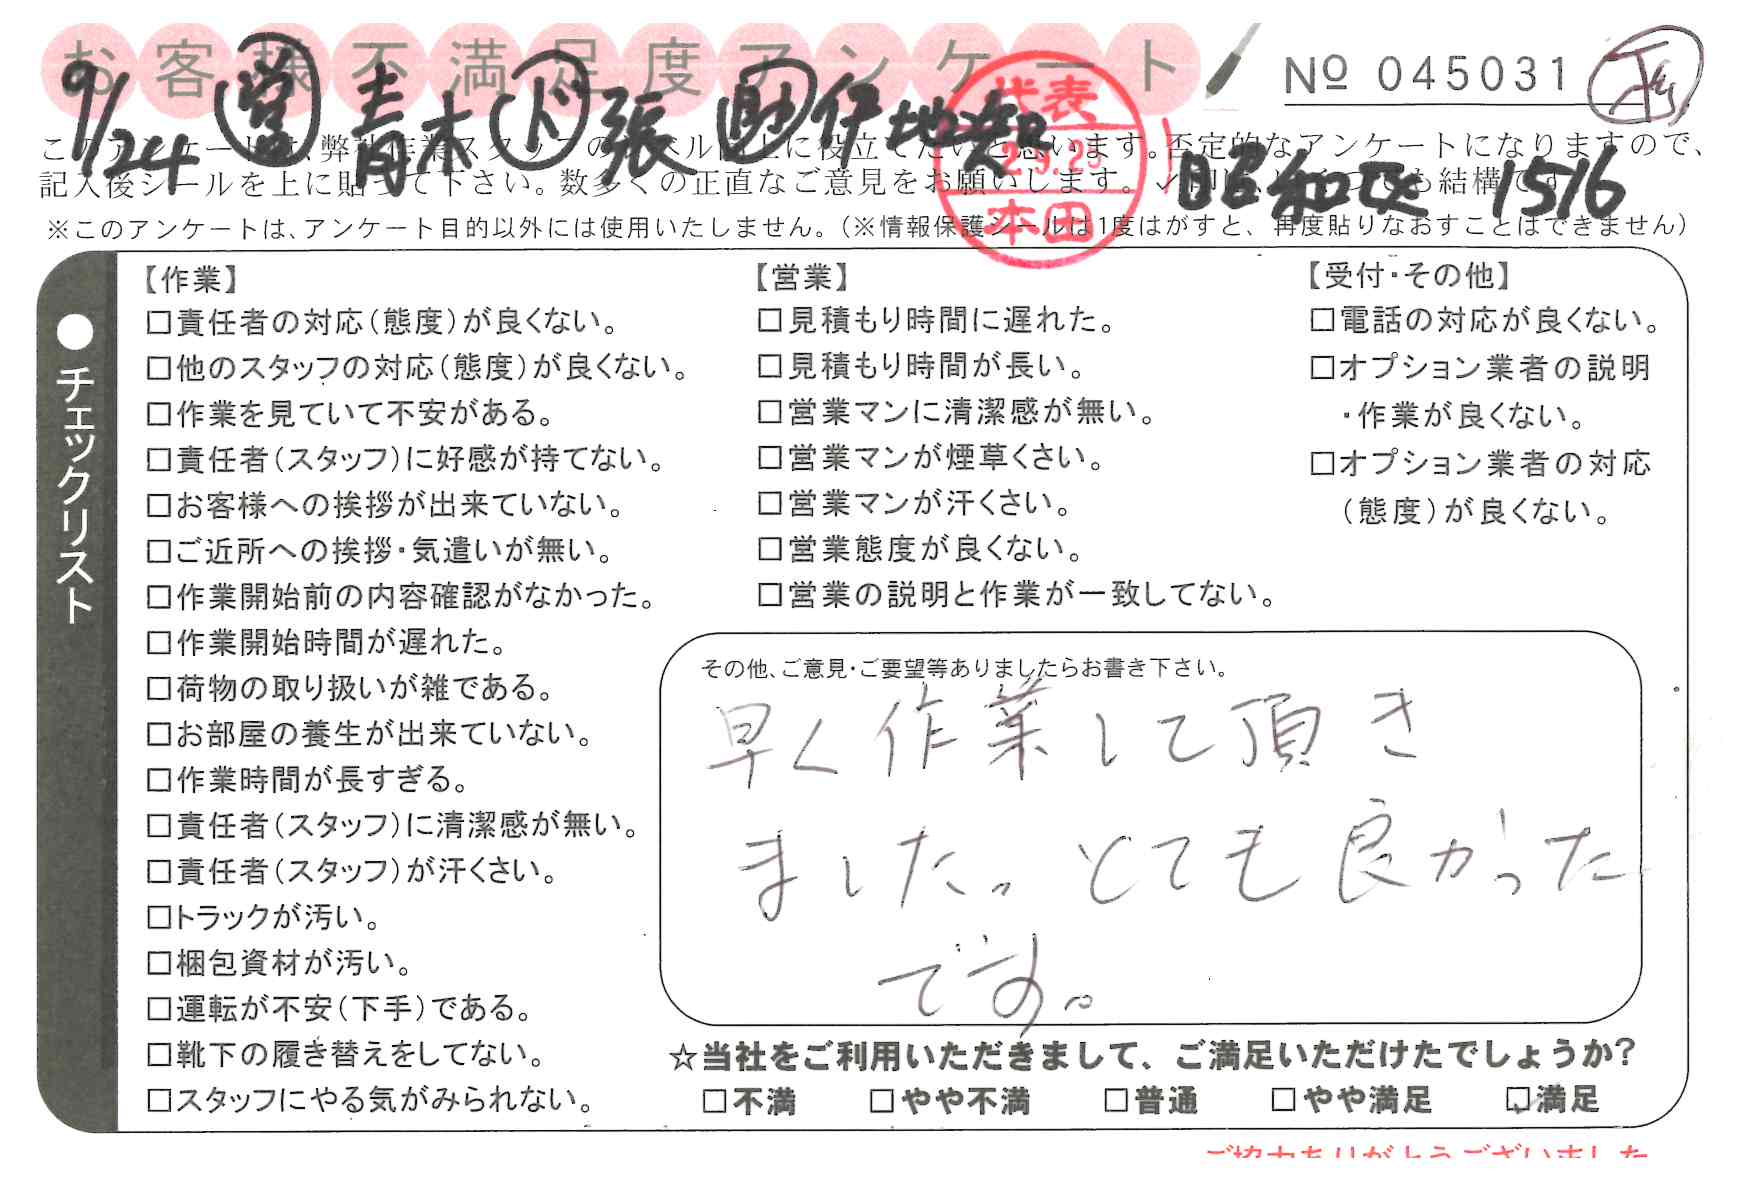 お客様不満足度アンケート
No 045031
9/24 営 青木 ド 張 助 伊地知
代表
本田
昭和区 1516
このアンケートは、弊社作業スタッフのレベル向上に役立てたいと思います。否定的なアンケートになりますので、
記入後シールを上に貼って下さい。数多くの正直なご意見をお願いします。
※このアンケートは、アンケート目的以外には使用いたしません。(※情報保護シールは1度はがすと、再度貼りなおすことはできません)
●チェックリスト
【作業】
□責任者の対応(態度)が良くない。
□他のスタッフの対応(態度)が良くない。
□作業を見ていて不安がある。
□責任者(スタッフ)に好感が持てない。
□お客様への挨拶が出来ていない。
□ご近所への挨拶・気遣いが無い。
□作業開始前の内容確認がなかった。
□作業開始時間が遅れた。
□荷物の取り扱いが雑である。
□お部屋の養生が出来ていない。
□作業時間が長すぎる。
□責任者(スタッフ)に清潔感が無い。
□責任者(スタッフ)が汗くさい。
□トラックが汚い。
□梱包資材が汚い。
□運転が不安(下手)である。
□靴下の履き替えをしてない。
□スタッフにやる気がみられない。
【営業】
□見積もり時間に遅れた。
□見積もり時間が長い。
□営業マンに清潔感が無い。
□営業マンが煙草くさい。
□営業マンが汗くさい。
□営業態度が良くない。
□営業の説明と作業が一致してない。
【受付・その他】
□電話の対応が良くない。
□オプション業者の説明
・作業が良くない。
□オプション業者の対応
(態度)が良くない。
その他、ご意見・ご要望等ありましたらお書き下さい。
早く作業して頂き
ました。とても良かった
です。
☆当社をご利用いただきまして、ご満足いただけたでしょうか?
□不満 □やや不満 □普通 □やや満足 ☑満足
ご協力ありがとうございました